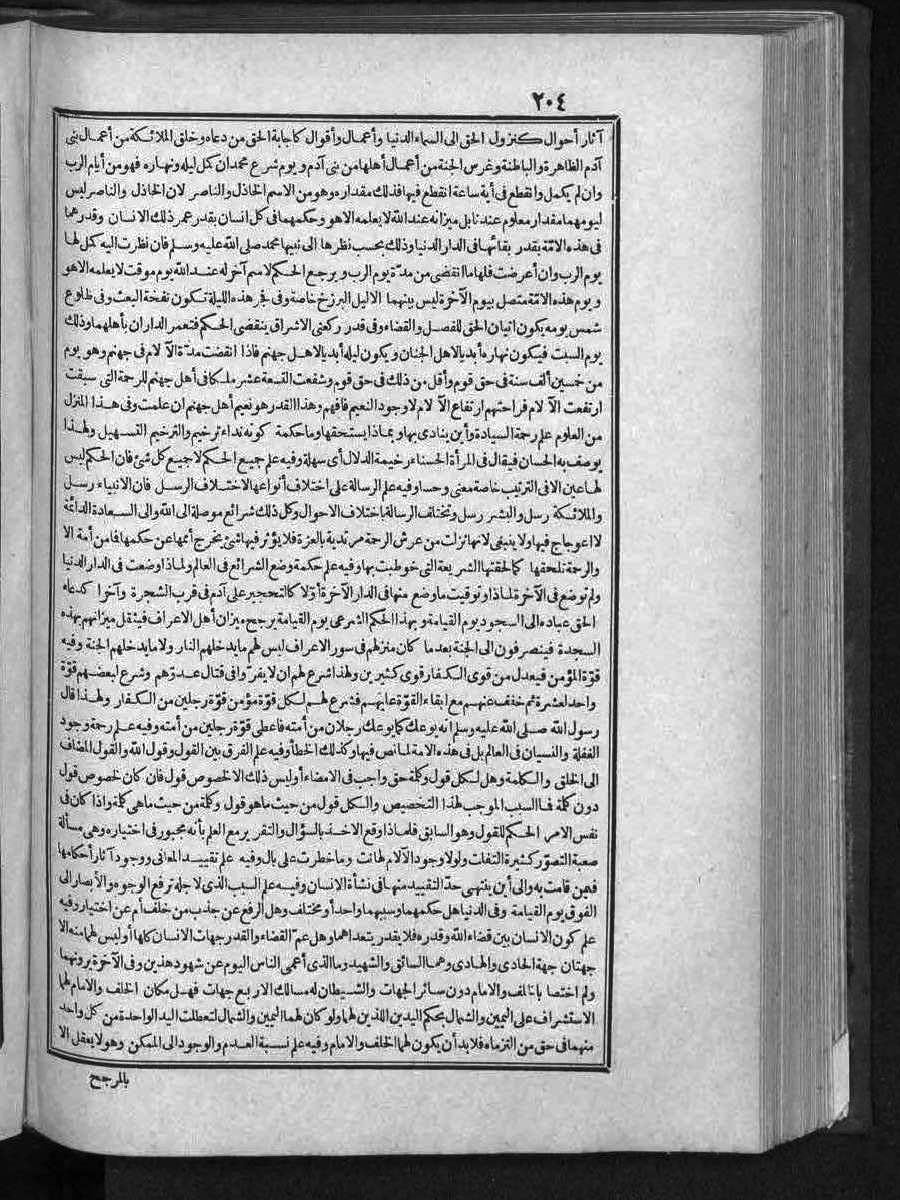 ٢٠٤
آثار أحوال كنزول الحق الى السماء الدنيا وأعمال وأقوال كاجابة الحق من دعاه وخلق الملائكة من أعمال بنى
آدم الظاهرة والباطنة وغرس الجنة من أعمال أهلها من بنى آدم ويوم شرع محمد ان كمل ليله ونهاره فهو من أيام الرب
وان لم يكمل وانقطع فى أية ساعة انقطع فيها فذلك مقداره وهو من الاسم الخاذل والناصر لان الخاذل والناصر ليس
ليومهما مقدار معلوم عندنا بل ميزانه عند الله لا يعلمه الا هو وحكمهما فى كل انسان بقدر عمر ذلك الانسان وقدرهما
فى هذه الامّة بقدر بقائها فى الدار الدنيا وذلك بحسب نظرها الى نبيها محمد صلى الله عليه وسلم فان نظرت اليه كمل لها
يوم الرب وان أعرضت فلها ما انقضى من مدّة يوم الرب ويرجع الحكم لاسم آخر له عند الله يوم موقت لا يعلمه الا هو
ويوم هذه الامّة متصل بيوم الآخرة ليس بينهما الا ليل البرزخ خاصة وفى فجر هذه الليلة تكون نفخة البعث وفى طلوع
شمس يومه يكون اتيان الحق للفصل والقضاء وفى قدر ركعتى الاشراق ينقضى الحكم فتعمر الداران بأهلهما وذلك
يوم السبت فيكون نهاره أبديا لاهل الجنان ويكون ليله أبديا لاهل جهنم فاذا انقضت مدّة الآلام فى جهنم وهو يوم
من خمسين ألف سنة فى حق قوم وأقل من ذلك فى حق قوم وشفعت التسعة عشر ملكا فى أهل جهنم للرحمة التى سبقت
ارتفعت الآلام فراحتهم ارتفاع الآلام لا وجود النعيم فافهم وهذا القدر هو نعيم أهل جهنم ان علمت وفى هذا المنزل
من العلوم علم رحمة السيادة وأين ينادى بها وبماذا يستحقها وما حكمة كونه نداء ترخيم والترخيم التسهيل ولهذا
يوصف به الحسان فيقال فى المرأة الحسناء رخيمة الدلال أى سهلة وفيه علم جميع الحكم لا جميع كل شئ فان الحكم ليس
لها عين الا فى الترتيب خاصة معنى وحسا وفيه علم الرسالة على اختلاف أنواعها لاختلاف الرسل فان الانبياء رسل
والملائكة رسل والبشر رسل وتختلف الرسالة باختلاف الاحوال وكل ذلك شرائع موصلة الى الله والى السعادة الدائمة
لا اعوجاج فيها ولا ينبغى لانها نزلت من عرش الرحمة مرتدية بالعزة فلا يؤثر فيها شئ يخرج أمها عن حكمها فما من أمة الا
والرحمة تلحقها كما لحقتها الشريعة التى خوطبت بها وفيه علم حكمة وضع الشرائع فى العالم ولماذا وضعت فى الدار الدنيا
ولم توضع فى الآخرة لماذا وتوقيت ما وضع منها فى الدار الآخرة أوّلا كالتحجير على آدم فى قرب الشجرة وآخرا كدعاه
الحق عباده الى السجود يوم القيامة وبهذا الحكم الشرعى يوم القيامة يرجح ميزان أهل الاعراف فيثقل ميزانهم بهذه
السجدة فينصرفون الى الجنة بعد ما كان منزلهم فى سور الاعراف ليس لهم ما يدخلهم النار ولا ما يدخلهم الجنة وفيه
قوّة المؤمن فيعدل من قوى الكفار قوى كثيرين ولهذا شرع لهم ان لا يفرّوا فى قتال عدوّهم وشرع لبعضهم قوّة
واحد لعشرة ثم خفف عنهم مع ابقاء القوّة عليهم فشرع لهم لكل قوّة مؤمن قوّة رجلين من الكفار ولهذا قال
رسول الله صلى الله عليه وسلم انه يوعك كما يوعك رجلان من أمته فاعطى قوّة رجلين من أمته وفيه علم رحمة وجود
الغفلة والنسيان فى العالم بل فى هذه الامة لما نص فيها وكذلك الخطأ وفيه علم الفرق بين القول وقول الله والقول المضاف
الى الخلق والكلمة وهل لكل قول وكلة حق واجب فى الامضاء أوليس ذلك الا لخصوص قول فان كان لخصوص قول
دون كلة فما السبب الموجب لهذا التخصيص والكل قول من حيث ما هو قول وكلة من حيث ما هى كلة واذا كان فى
نفس الامر الحكم للقول وهو السابق فلماذا وقع الاخذ بالسؤال والتقرير مع العلم بأنه مجبور فى اختياره وهى مسألة
صعبة التصوّر كثيرة التفلت ولولا وجود الآلام لهانت وما خطرت على بال وفيه علم تقييد المعانى ووجود آثار أحكامها
فيمن قامت به والى أين ينتهى حدّ التقييد منها فى نشأة الانسان وفيه علم السبب الذى لاجله ترفع الوجوه والأبصار الى
الفوق يوم القيامة وفى الدنيا هل حكمهما وسببهما واحد أو مختلف وهل الرفع عن جذب من خلف أم عن اختيار وفيه
علم كون الانسان بين قضاء الله وقدره فلا يقدر يتعداهما وهل عمّ القضاء والقدر جهات الانسان كلها أو ليس لهما منه الا
جهتان جهة الحادى والهادى وهما السائق والشهيد وما الذى أعمى الناس اليوم عن شهود هذين وفى الآخرة يرونهما
ولم اختصا بالخلف والامام دون سائر الجهات والشيطان له مسالك الاربع جهات فهل مكان الخلف والامام لهما
الاستشراف على اليمين والشمال بحكم اليدين اللذين لهما ولو كان لهما اليمين والشمال لتعطلت اليد الواحدة من كل واحد
منهما فى حق من التزماه فلا بد أن يكون لهما الخلف والامام وفيه علم نسبة العدم والوجود الى الممكن وهو لا يعقل الا
بالمرجح